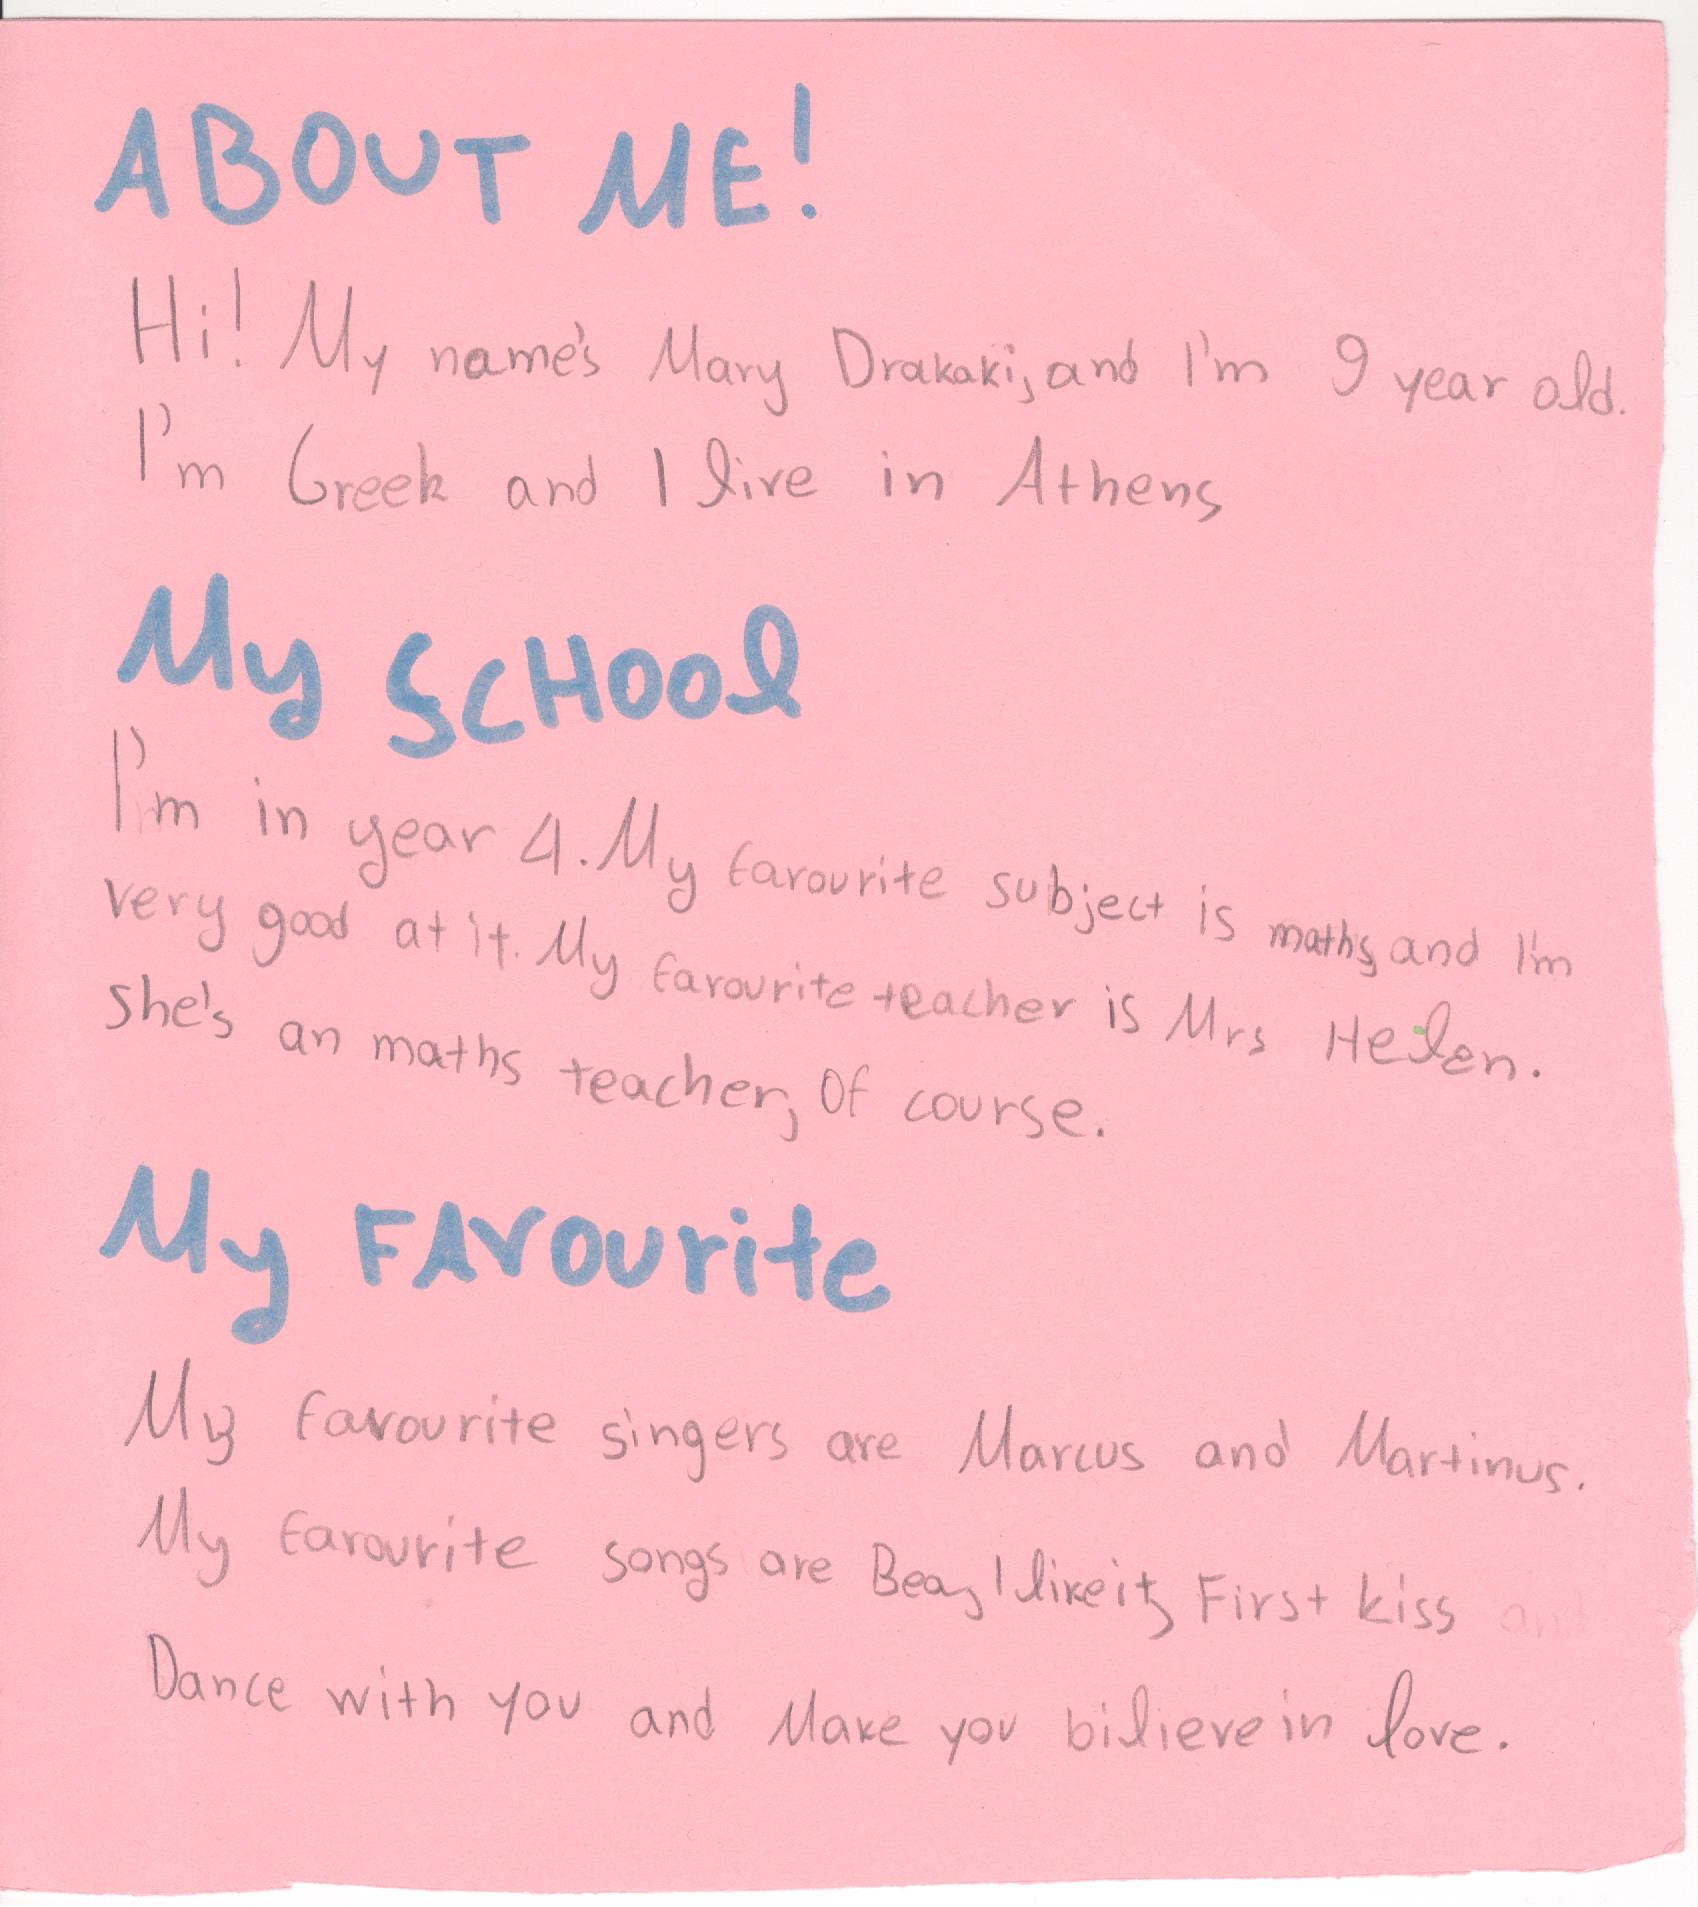 ABOUT ME!
Hi! My name's Mary Drakaki, and I'm 9 year old.
I'm Greek and I live in Athens
My SCHOOl
I'm in year 4. My favourite subject is maths, and I'm
very good at it. My favourite teacher is Mrs Helen.
She's an maths teacher, Of course.
My FAVourite
My favourite singers are Marcus and Martinus.
My favourite songs are Bea, I like it, First kiss and
Dance with you and Make you bilieve in love.